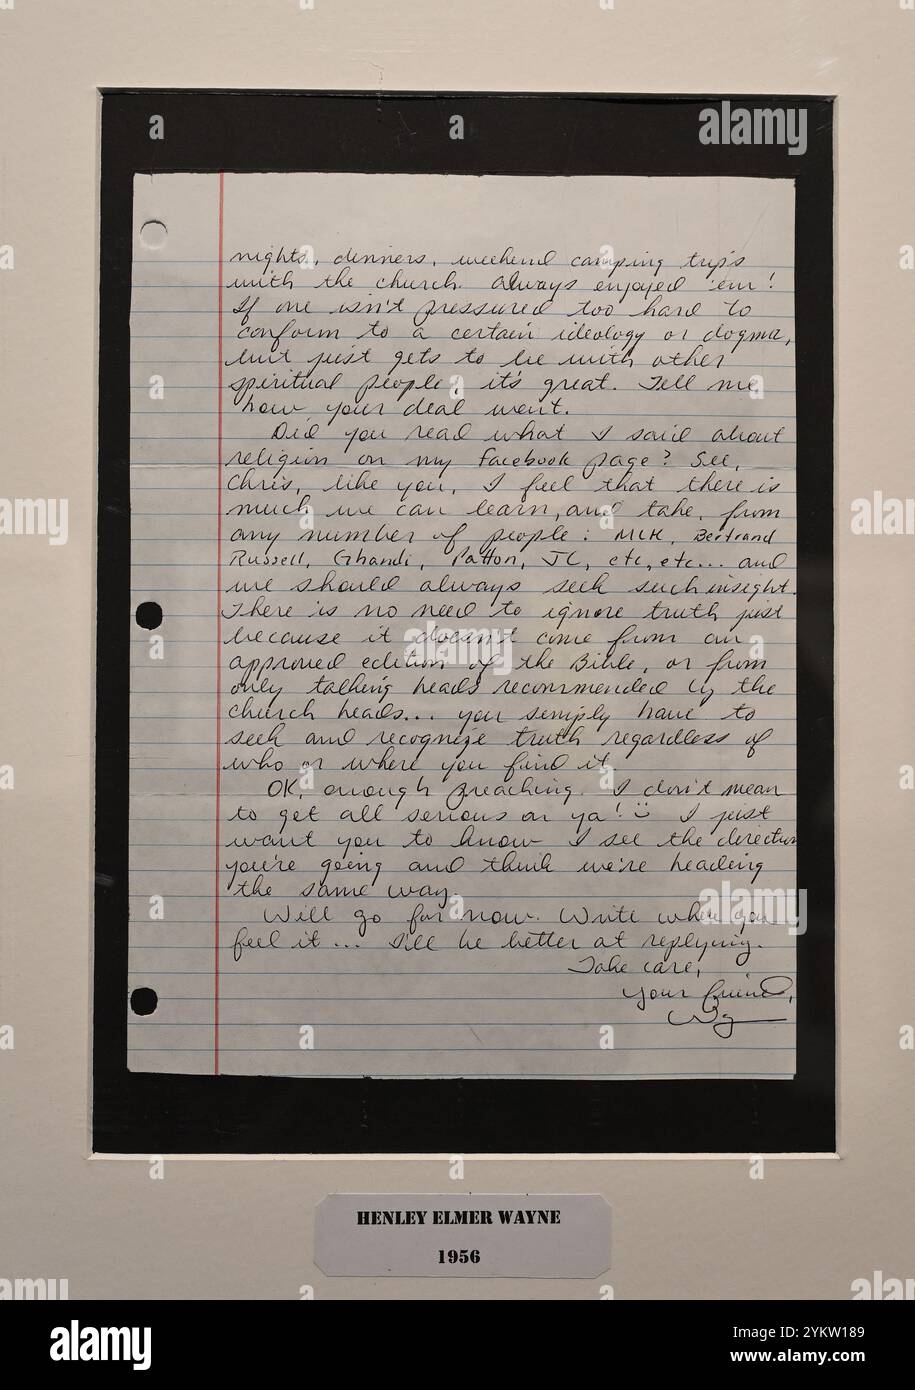 nights, dinners, weekend camping trips
with the church. Always enjoyed 'em!
If one isn't pressured too hard to
conform to a certain ideology or dogma,
but just gets to be with other
spiritual people, it's great. Tell me
how your deal went.
Did you read what I said about
religion on my Facebook page? See,
Chris, like you, I feel that there is
much we can learn, and take, from
any number of people: MLK, Bertrand
Russell, Ghandi, Patton, JC, etc, etc... and
we should always seek such insight.
There is no need to ignore truth just
because it doesn't come from an
approved edition of the Bible, or from
only talking heads recommended by the
church heads... you simply have to
seek and recognize truth regardless of
who or where you find it.
OK, enough preaching. I don't mean
to get all serious on ya! I just
want you to know I see the direction
you're going and think we're heading
the same way.
Will go for now. Write when you
feel it... I'll be better at replying.
Take care,
Your friend,
HENLEY ELMER WAYNE
1956
alamy
a
alamy
2YKW189
www.alamy.com